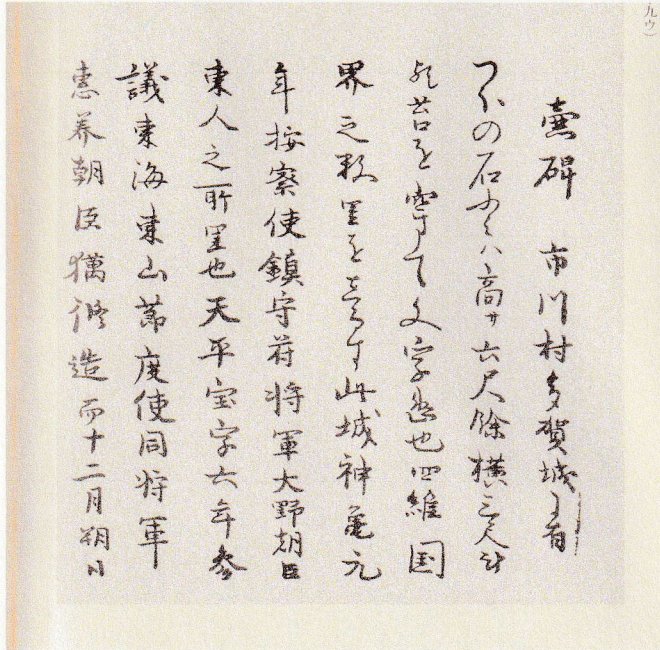 九ウ）
壷碑　市川村多賀城ニ有
つほの石ふミハ高サ六尺餘横三尺斗
歟苔を穿て文字幽也四維国
界之数里を志るす此城神亀元
年按察使鎮守苻将軍大野朝臣
東人之所里也天平宝字六年参
議東海東山節度使同将軍
恵美朝臣獦修造而十二月朔日